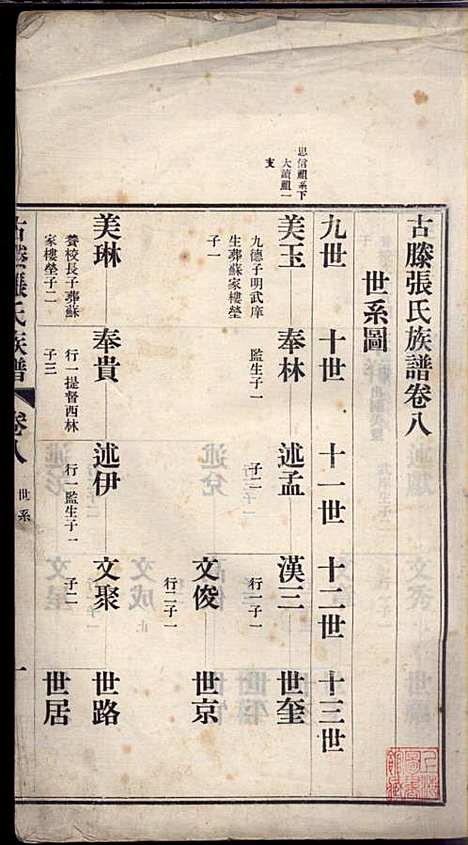 古滕張氏族譜卷八
世系圖
思信祖系下
大讀祖一
支
九世 十世 十一世 十二世 十三世
美玉 奉林 述孟 漢三 世奎
九德子明武庠 監生子一 子二 行一子一
生葬蘇家樓塋
子一
文俊 世京
行二子一
美琳 奉貴 述伊 文聚 世路
養校長子葬蘇 行一提督西林 行一監生子一 子二
家樓塋子二 子三
世居
古滕張氏族譜 卷八 世系 一